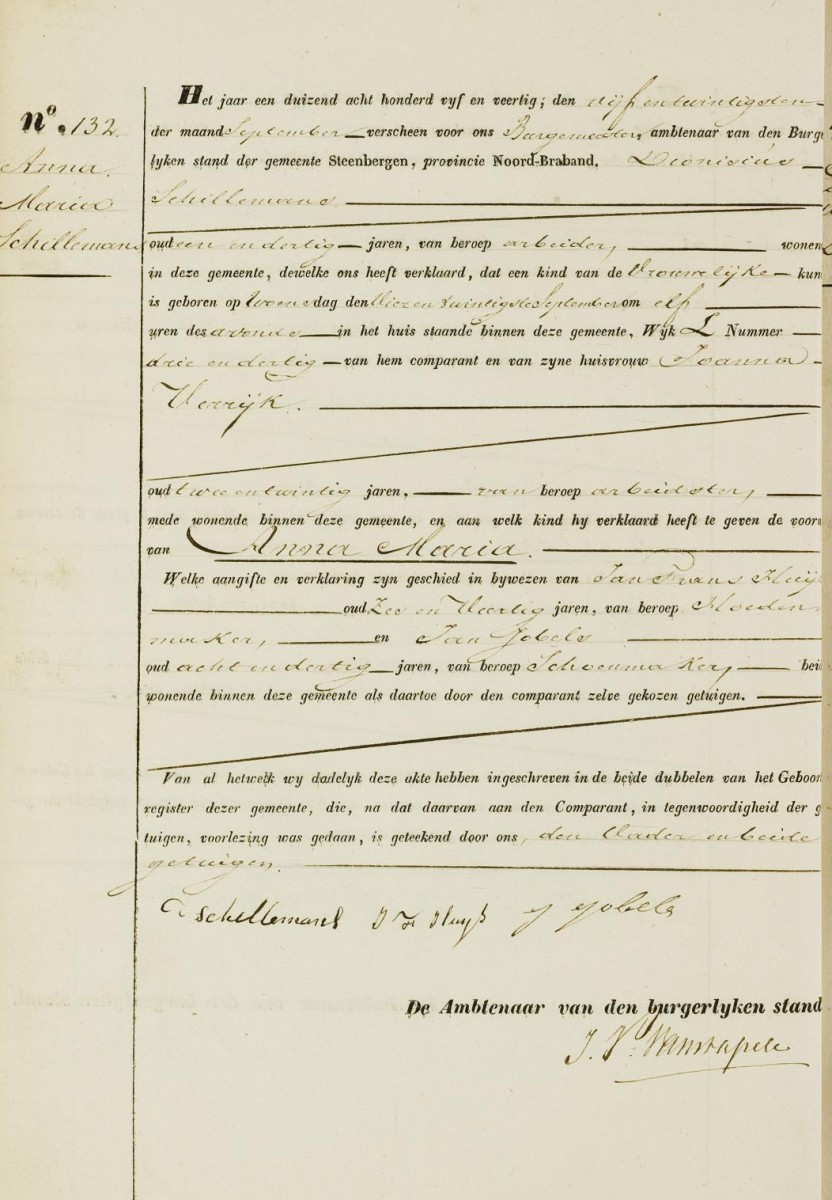 No. 132.
Anna
Maria
Schillemans
Het jaar een duizend acht honderd vyf en veertig; den vijf en twintigsten
der maand September verscheen voor ons Burgemeester, ambtenaar van den Burge
lyken stand der gemeente Steenbergen, provincie Noord-Braband. Dionisius
Schillemans
oud een en dertig jaren, van beroep arbeider, wonen
in deze gemeente, dewelke ons heeft verklaard, dat een kind van de Vrouwelijke kun
is geboren op Woensdag den Vier en twintigste September om elf
uren des avonds in het huis staande binnen deze gemeente, Wyk L Nummer
drie en dertig van hem comparant en van zyne huisvrouw Joanna
Verrijk.
oud twee en twintig jaren, van beroep arbeidster,
mede wonende binnen deze gemeente, en aan welk kind hy verklaard heeft te geven de voor
van Anna Maria.
Welke aangifte en verklaring zyn geschied in bywezen van Jan Frans Huij
oud Zes en Veertig jaren, van beroep Hoeden
maker, en Jan Jobels
oud acht en dertig jaren, van beroep Schoenmaker, beid
wonende binnen deze gemeente als daartoe door den comparant zelve gekozen getuigen.
Van al hetwelk wy dadelyk deze akte hebben ingeschreven in de beide dubbelen van het Geboort
register dezer gemeente, die, na dat daarvan aan den Comparant, in tegenwoordigheid der g
tuigen, voorlezing was gedaan, is geteekend door ons, den Vader en beide
getuigen.
Schillemans J F Huyß J Jobels
De Ambtenaar van den burgerlyken stand
J. V.